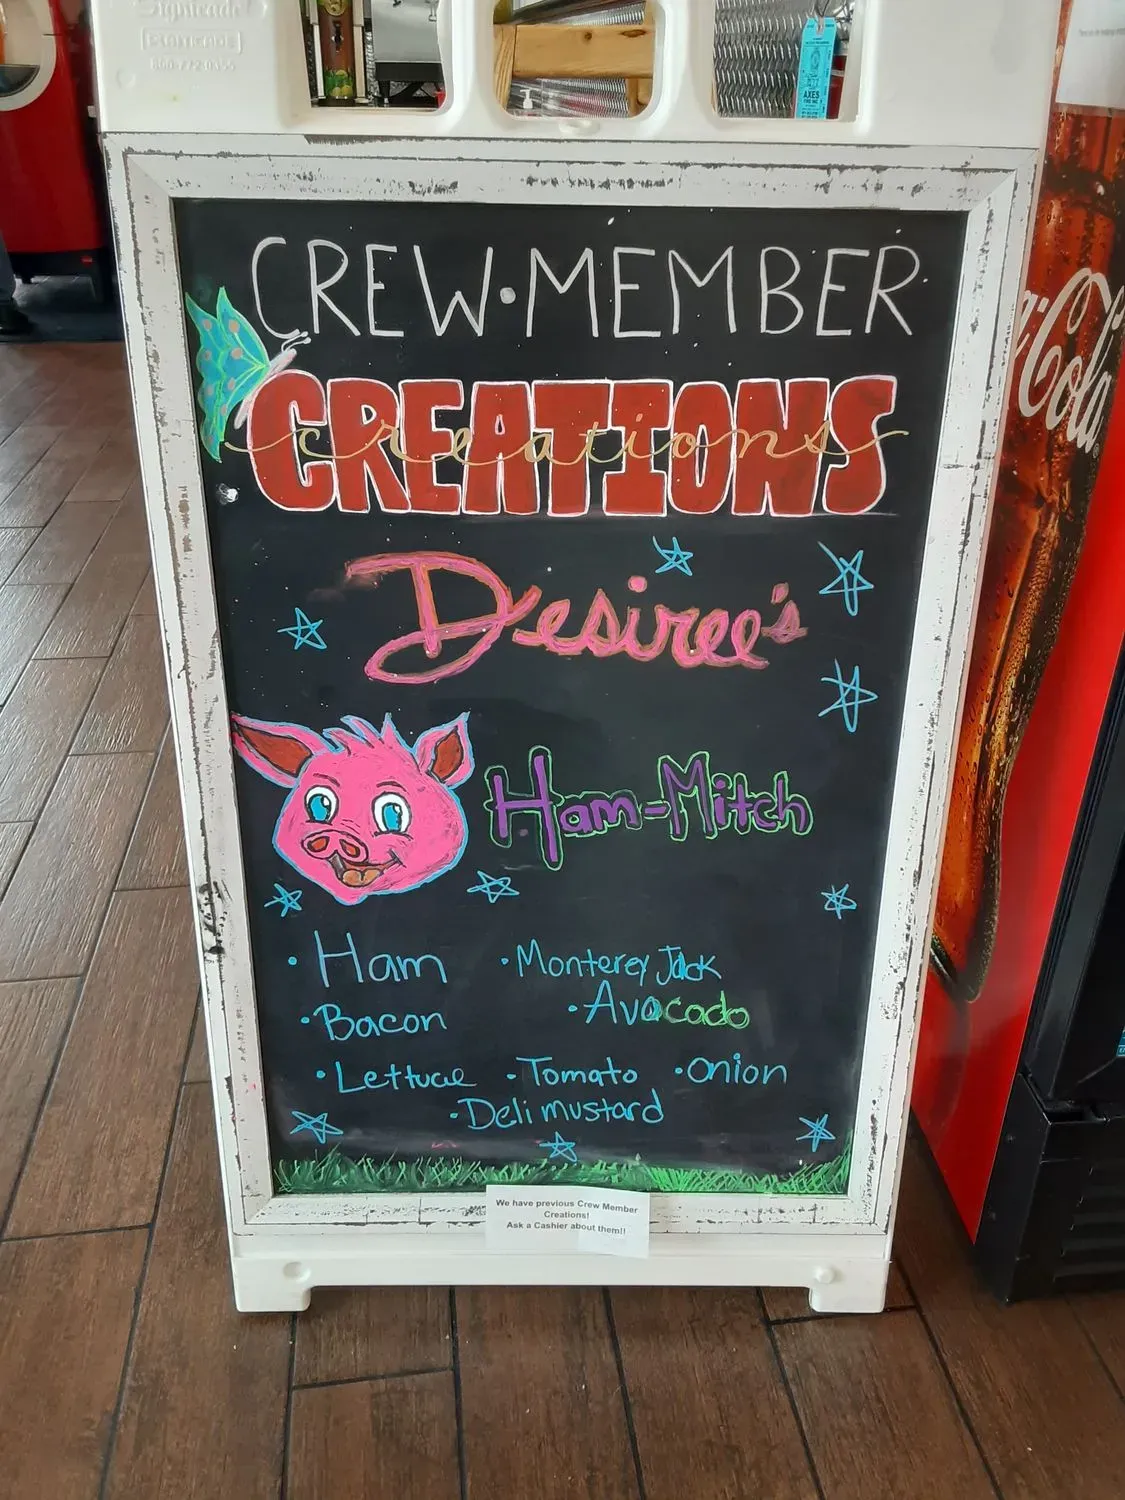 Signicade
PLASTICADE
800-772-0355
AXES
CREW·MEMBER
CREATIONS
creations
Desiree's
Ham-Mitch
· Ham · Monterey Jack
· Bacon · Avocado
· Lettuce · Tomato · Onion
· Deli mustard
We have previous Crew Member
Creations!
Ask a Cashier about them!!
Coca-Cola